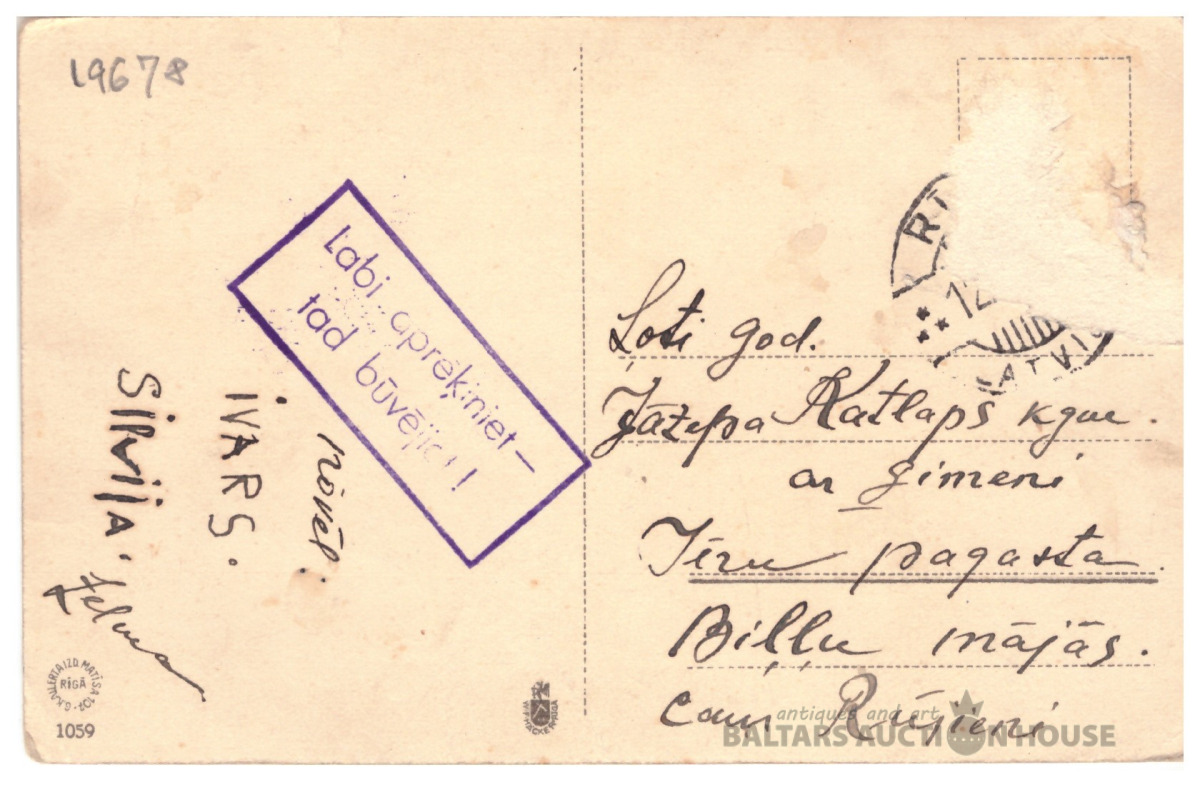 19678
Labi apreķiniet —
tad būvējiet!
novēl:
IVARS.
SilviJA.
Zelma
G.K. ALLERTA IZD. MATĪSA 107.
RĪGĀ
1059
RĪ
12
LATVI
Ļoti god.
Jāzepa Katlaps kgue.
ar ģimeni
Ķēru pagasta
Biļļu mājās.
caur Rūjieni
antiques and art
BALTARS AUCTION HOUSE